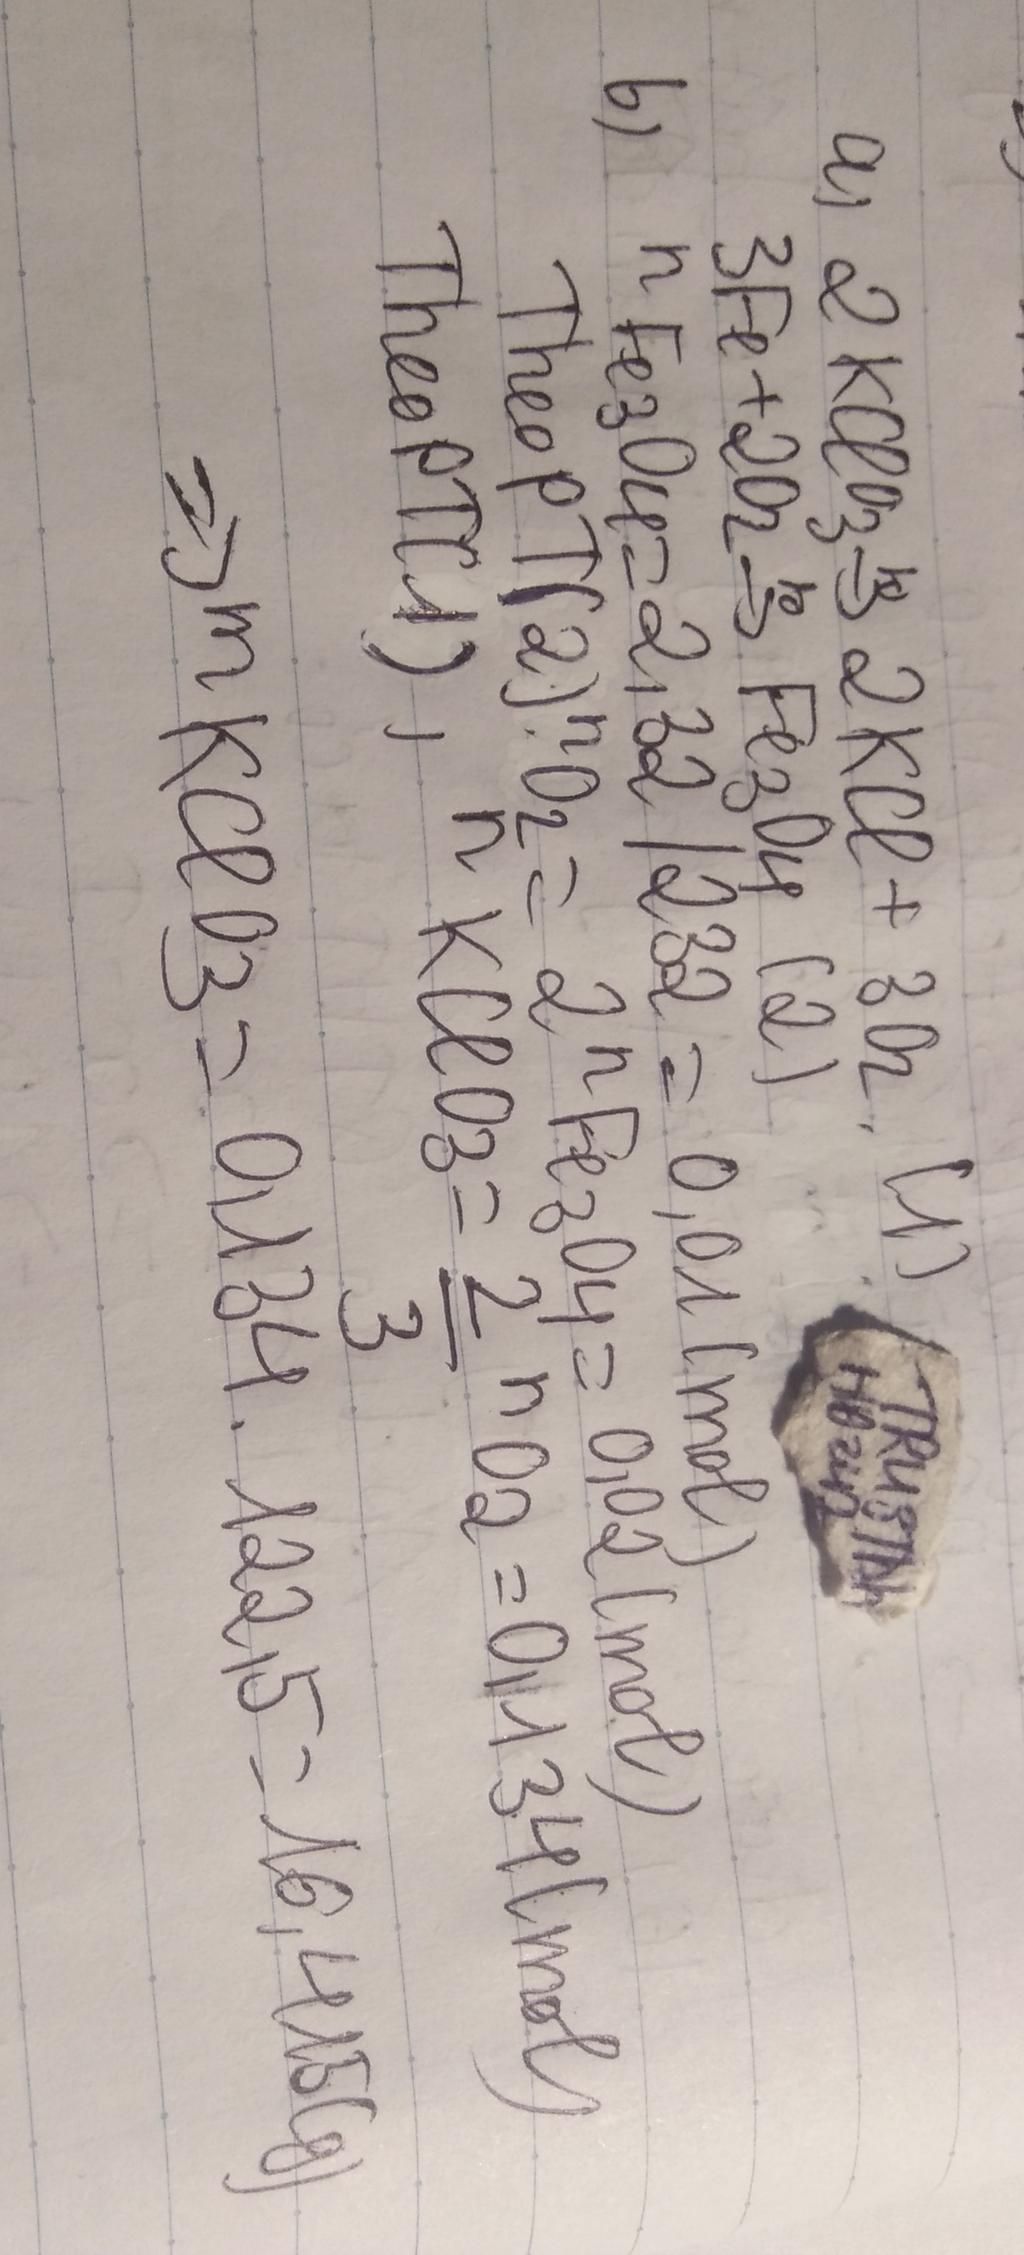 a, 2KClO3 -t°-> 2KCl + 3O2. (1)
3Fe + 2O2 -t°-> Fe3O4 (2)
TRUSTIN
HOZUP
b, nFe3O4 = 2,32 / 232 = 0,01 (mol)
Theo pT(2): nO2 = 2nFe3O4 = 0,02 (mol)
Theo pT(1), nKClO3 = 2/3 nO2 = 0,134 (mol)
=> mKClO3 = 0,134. 122,5 = 16,415(g)